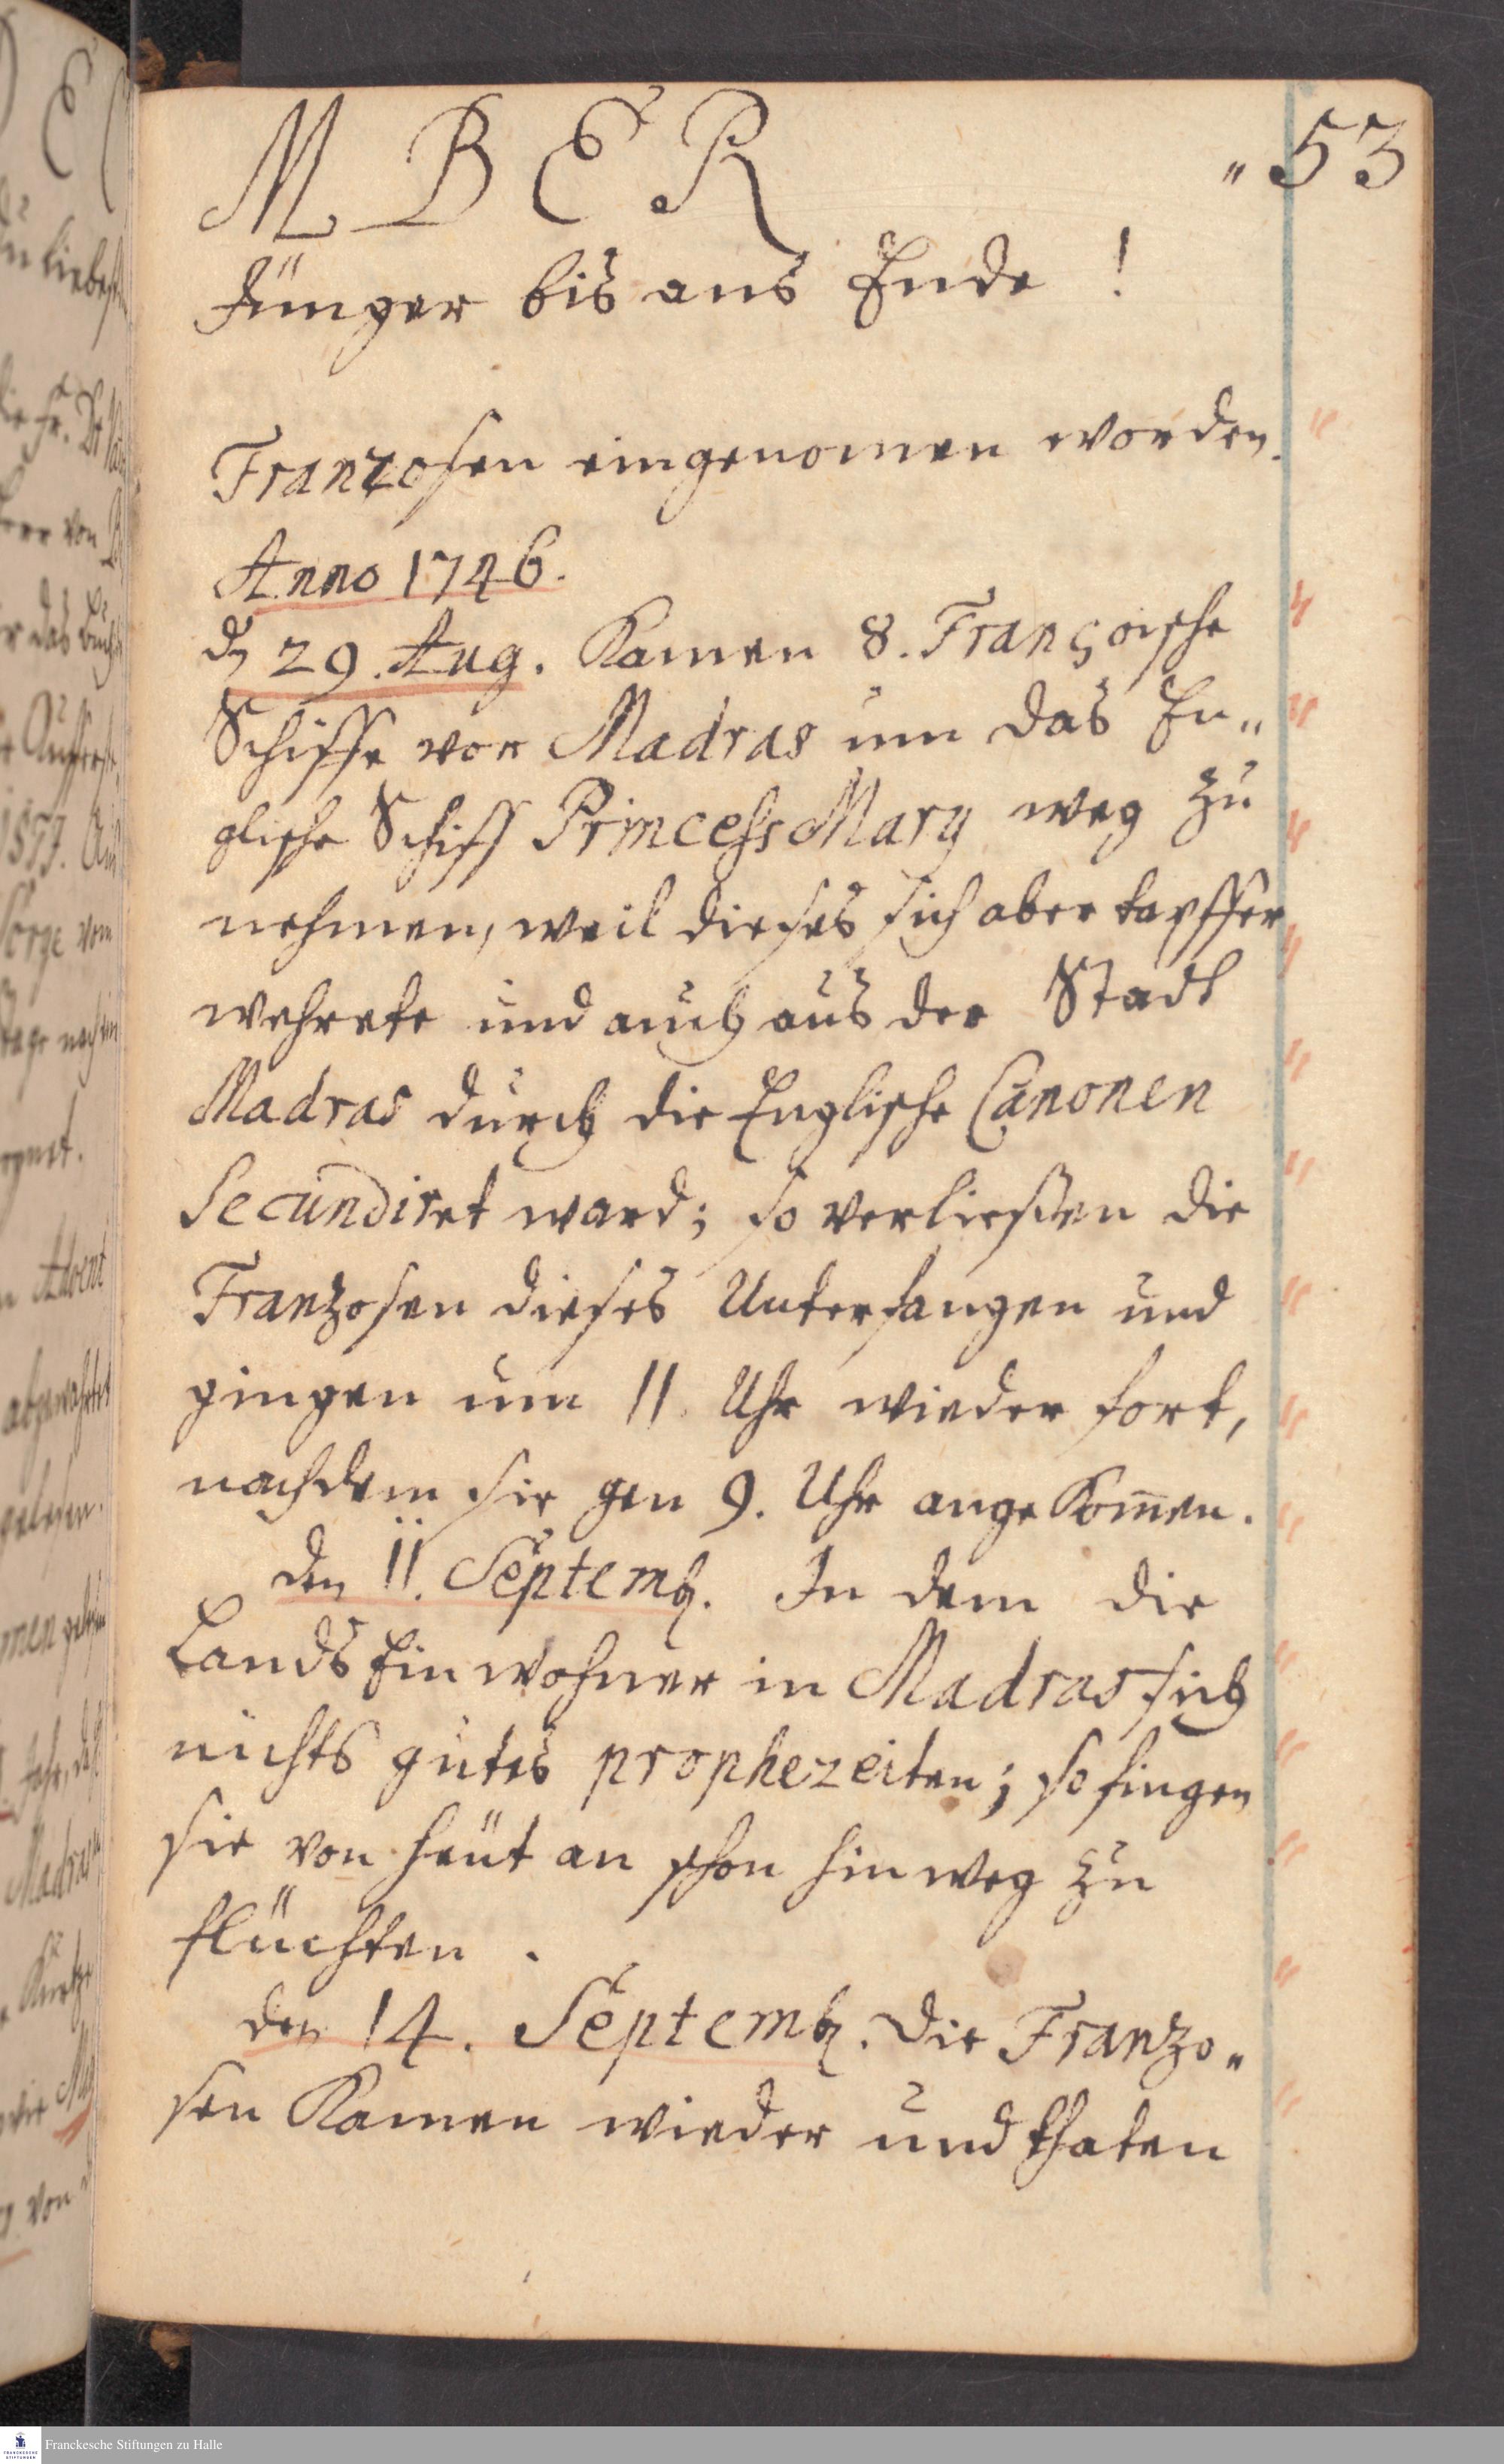 M B E R „53
Jünger bis ans Ende !
Franzosen eingenomen worden.
Anno 1746.
d 29. Aug. Kamen 8. Françoische
Schiffe vor Madras um das En„
glische Schiff Princess Mary weg zu
nehmen, weil dieses sich aber tapffer
wehrete und auch aus der Stadt
Madras durch die Englische Canonen
Secundiret ward; so verließen die
Franzosen dieses Unterfangen und
gingen um 11. Uhr wieder fort,
nachdem sie gen 9. Uhr angekom̄en.
den 11. Septemb. In dem die
Lands Einwohner in Madras sich
nichts gutes prophezeiten; so fingen
sie von heut an schon hinweg zu
flüchten .
den 14. Septemb. die Franzo„
sen Kamen wieder und thaten
Franckesche Stiftungen zu Halle